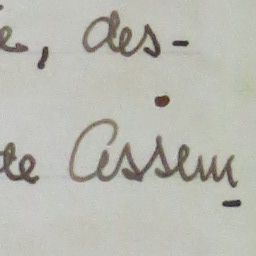 e, des-
te Assem